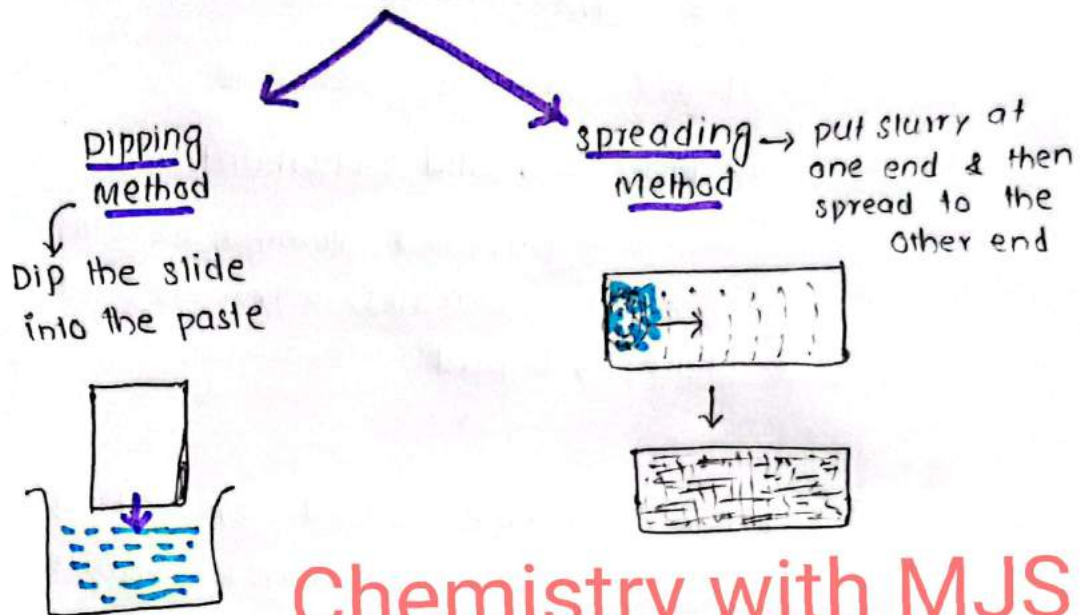 Dipping
Method
Dip the slide
into the paste
spreading → put slurry at
Method one end & then
spread to the
Other end
Chemistry with MJS